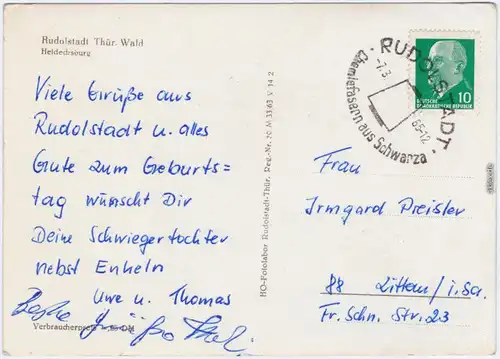 Rudolstadt Thür. Wald
Heidecksburg
Viele Grüße aus
Rudolstadt u. alles
Gute zum Geburts=
tag wünscht Dir
Deine Schwiegertochter
nebst Enkeln
Uwe u. Thomas
Beste Grüße
Verbraucherpreis
HO-Fotolabor Rudolstadt-Thür. Reg.-Nr.
RUDOLSTADT
-7.3. 65-12
Chemiefasern aus Schwarza
DEUTSCHE
DEMOKRATISCHE REPUBLIK
10
Frau
Irmgard Preisler
88 Zittau / i. Sa.
Fr. Schn. Str. 23